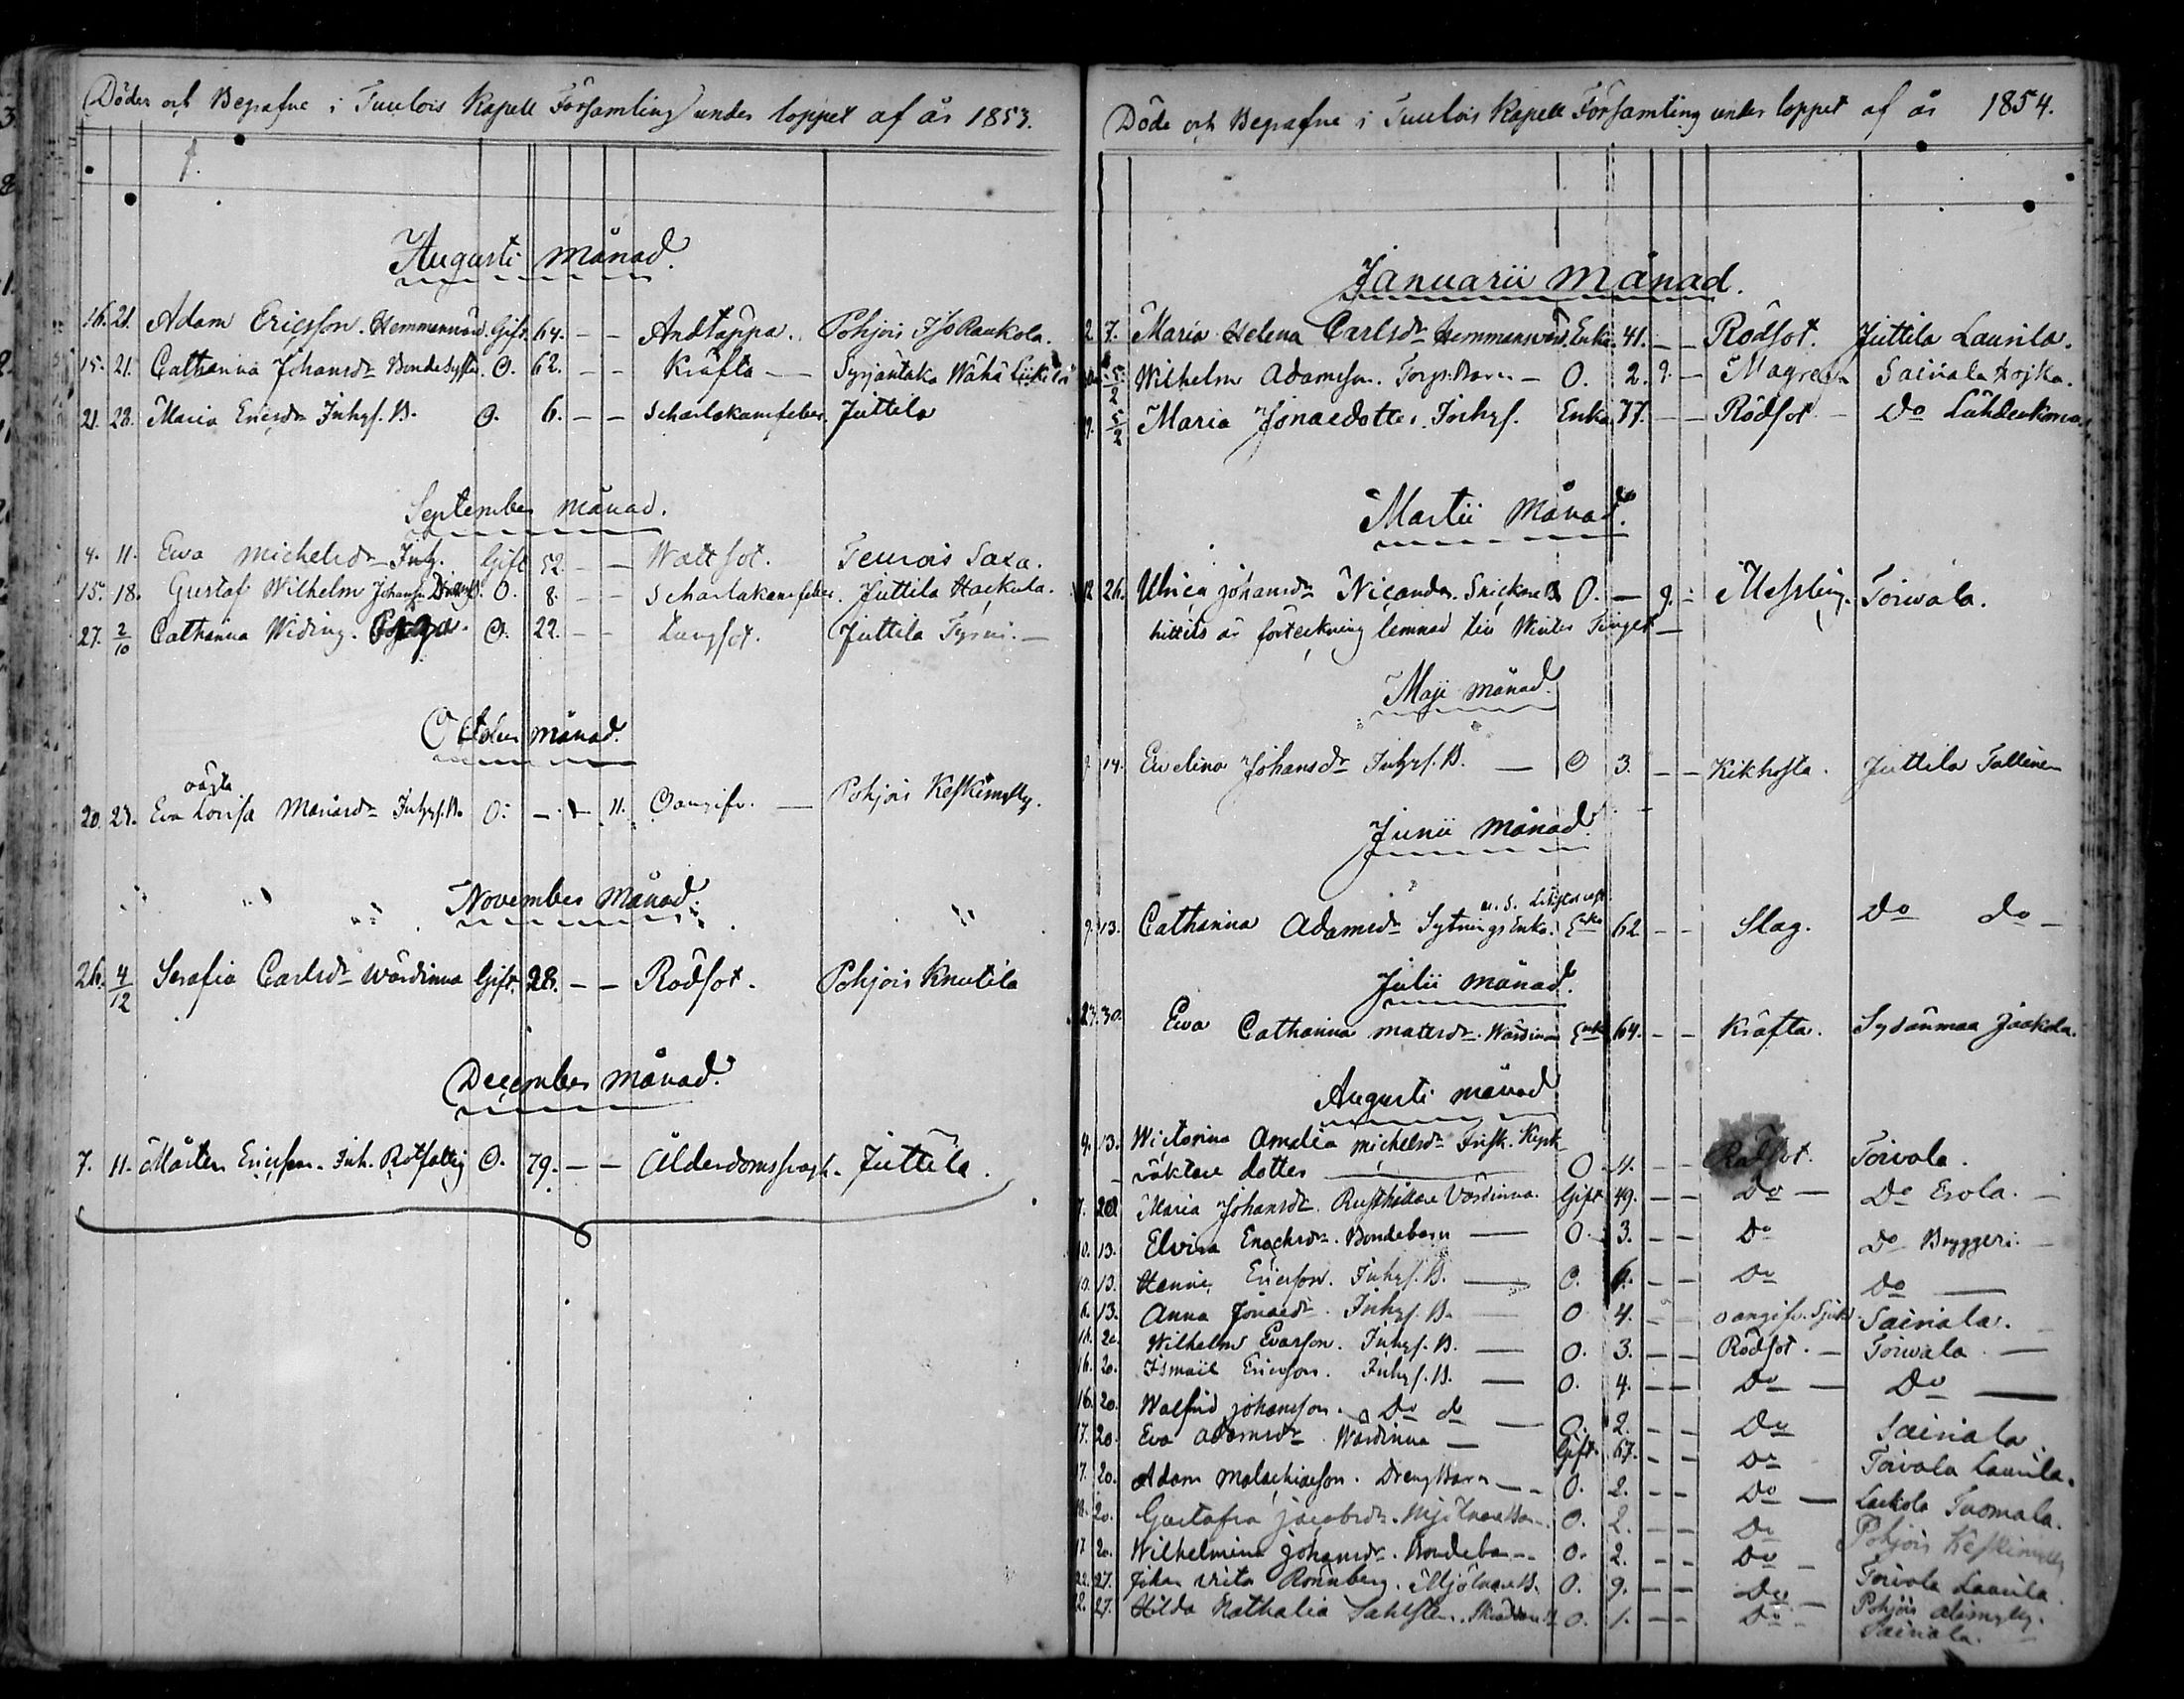 Döde och Begrafne i Tuulois Kapell Församling under loppet af år 1853.
Augusti månad.
16. 21. Adam Ericsson. Hemmansvärd. Gift. 64. — — Andtäppa. Pohjois Iso Raukola.
15. 21. Catharina Johansdr O. 62. — — Kräfta — Syrjäntaka Wähä
21. 28. Maria Ericsdr Inhys. B. O. 6. — — Scharlakansfeber Juttila
September månad.
4. 11. Ewa Michelsdr Inh. Gift 52. — — Wattsot. Teurois Saxa.
15. 18. Gustaf Wilhelm Johansson O. 8. — — Scharlakansfeber. Juttila Hackula.
27. 2/10 Catharina Widing. O. 22. — — Lungsot. Juttila Tyrni. —
October månad.
oägta
20. 23. Eva Lovisa Mariasdr Inhys. B. O. — — 11. Oangifv. — Pohjois Keskimylly.
November månad.
26. 4/12 Serafia Carlsdr Wärdinna Gift. 28. — — Rödsot. Pohjois Knutila
December månad.
7. 11. Mårten Ericsson. Inh. Rotfattig O. 79. — — Ålderdomssvagh. Juttila.
Döde och Begrafne i Tuulois Kapell Församling under loppet af år 1854.
Januarii månad.
2. 7. Maria Helena Carlsdr Hemmansvärd. Enka. 41. — — Rödsot. Juttila Laurila.
5/2 Wilhelm Adamsson. Torp. Barn — O. 2. 9. — Sairiala
5/2 Maria Jonaedotter. Inhys. Enka 77. — — Rödsot — Do Lähdenkorva
Martii månad.
26. Ulrica Johansdr Nicander. Snickare B. O. — 9. — Messling. Toivala.
hittils är förteckning lemnad till Winter Tinget —
Maji månad.
14. Evelina Johansdr Inhys. B. — O 3. — — Kikhosta. Juttila Tallinen
Junii månad.
9. 13. Catharina Adamsdr Sytnings Enka. Enka 62 — — Slag. Do do —
Julii månad.
23. 30. Ewa Catharina Mattsdr. Wärdinna Enka 64. — — Kräfta. Sydänmaa Jaakola.
Augusti månad
9. 13. Wictorina Amalia Michelsdr
väktare dotter — O 4. — — Rödsot. Toivola.
7. 20. Maria Johansdr. Rusthållare Värdinna. Gift 49. — — Do — Do Erola. —
10. 13. Elvira Enochsdr. Bondebarn — O. 3. — — Do Do Bryggeri. —
10. 13. Ericsson. Inhys. B. — O. 6. — — Do Do —
13. Anna Jonaedr. Inhys. B. — O 4. — — oangifv. Sjukd. Sairiala. —
16. 20. Wilhelm Evasson. Inhys. B. — O. 3. — — Rödsot. — Toivala —
16. 20. Ismail Ericsson. Inhys. B. — O. 4. — — Do — Do —
16. 20. Walfrid Johansson. Do do — O. 2. — — Do Sairiala
17. 20. Eva Adamsdr Wärdinna — Gift. 67. — — Do Toivola Laurila.
17. 20. Adam Malachiasson. Dreng Barn — O. 2. — — Do — Tuomala.
18. 20. Gustafva Jacobsdr. Mjölnare Barn. O. 2. — — Do Pohjois Keskimylly
17 20. Wilhelmina Johansdr. Bondebarn — O. 2. — — Do — Toivola Laurila.
22. 27. Johan Rönnberg. Mjölnare B. O. 9. — — Do — Pohjois Alimylly.
22. 27. Hilda Nathalia Sahlsten. O. 1. — — Do — Sairiala.